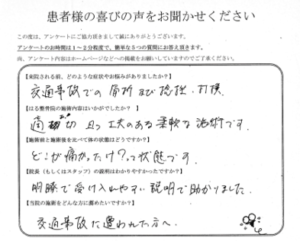 患者様の喜びの声をお聞かせください
この度は、アンケートにご協力頂きまして誠にありがとうございます。
アンケートのお時間は1～2分程度で、簡単な5つの質問にお答え頂きます。
尚、アンケート内容はホームページなどへの掲載をお願いしていますのでご了承ください。
【来院される前、どのような症状やお悩みがありましたか？】
交通事故での 骨折 及び 捻挫・打撲
【はる整骨院の施術内容はいかがでしたか？】
適切 且つ 工夫のある 柔軟な 施術です。
【施術前と施術後を比べて体の状態はどうですか？】
どこが痛かったけ？って状態です。
【院長（もしくはスタッフ）の説明はわかりやすかったですか？】
明瞭で受け入れやすい説明で助かりました。
【当院の施術をどんな方に薦めたいですか？】
交通事故に遭われた方へ。